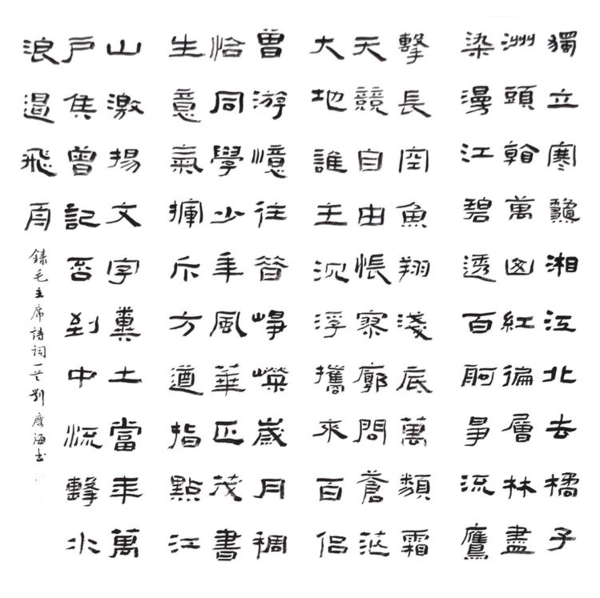 獨立寒龝湘江北去橘子
洲頭看萬山紅徧層林盡
染漫江碧透百舸爭流鷹
擊長空魚翔淺底萬類霜
天競自由悵寥廓問蒼茫
大地誰主沉浮攜來百侶
曽游憶往昔崢嶸歲月稠
恰同學少年風華正茂書
生意氣揮斥方遒指點江
山激揚文字糞土當年萬
戶侯曾記否到中流擊水
浪遏飛舟
錄毛主席詩詞一首劉慶海書